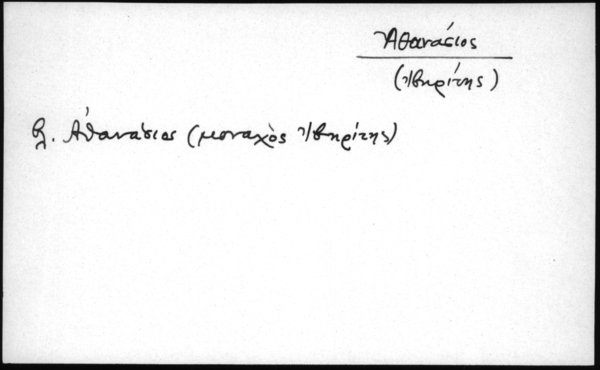 Ἀθανάσιος
(Ἰβηρίτης)
βλ. Ἀθανάσιος (μοναχὸς Ἰβηρίτης)